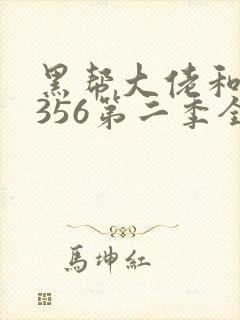 黑帮大佬和
356第二季全
馬坤紅